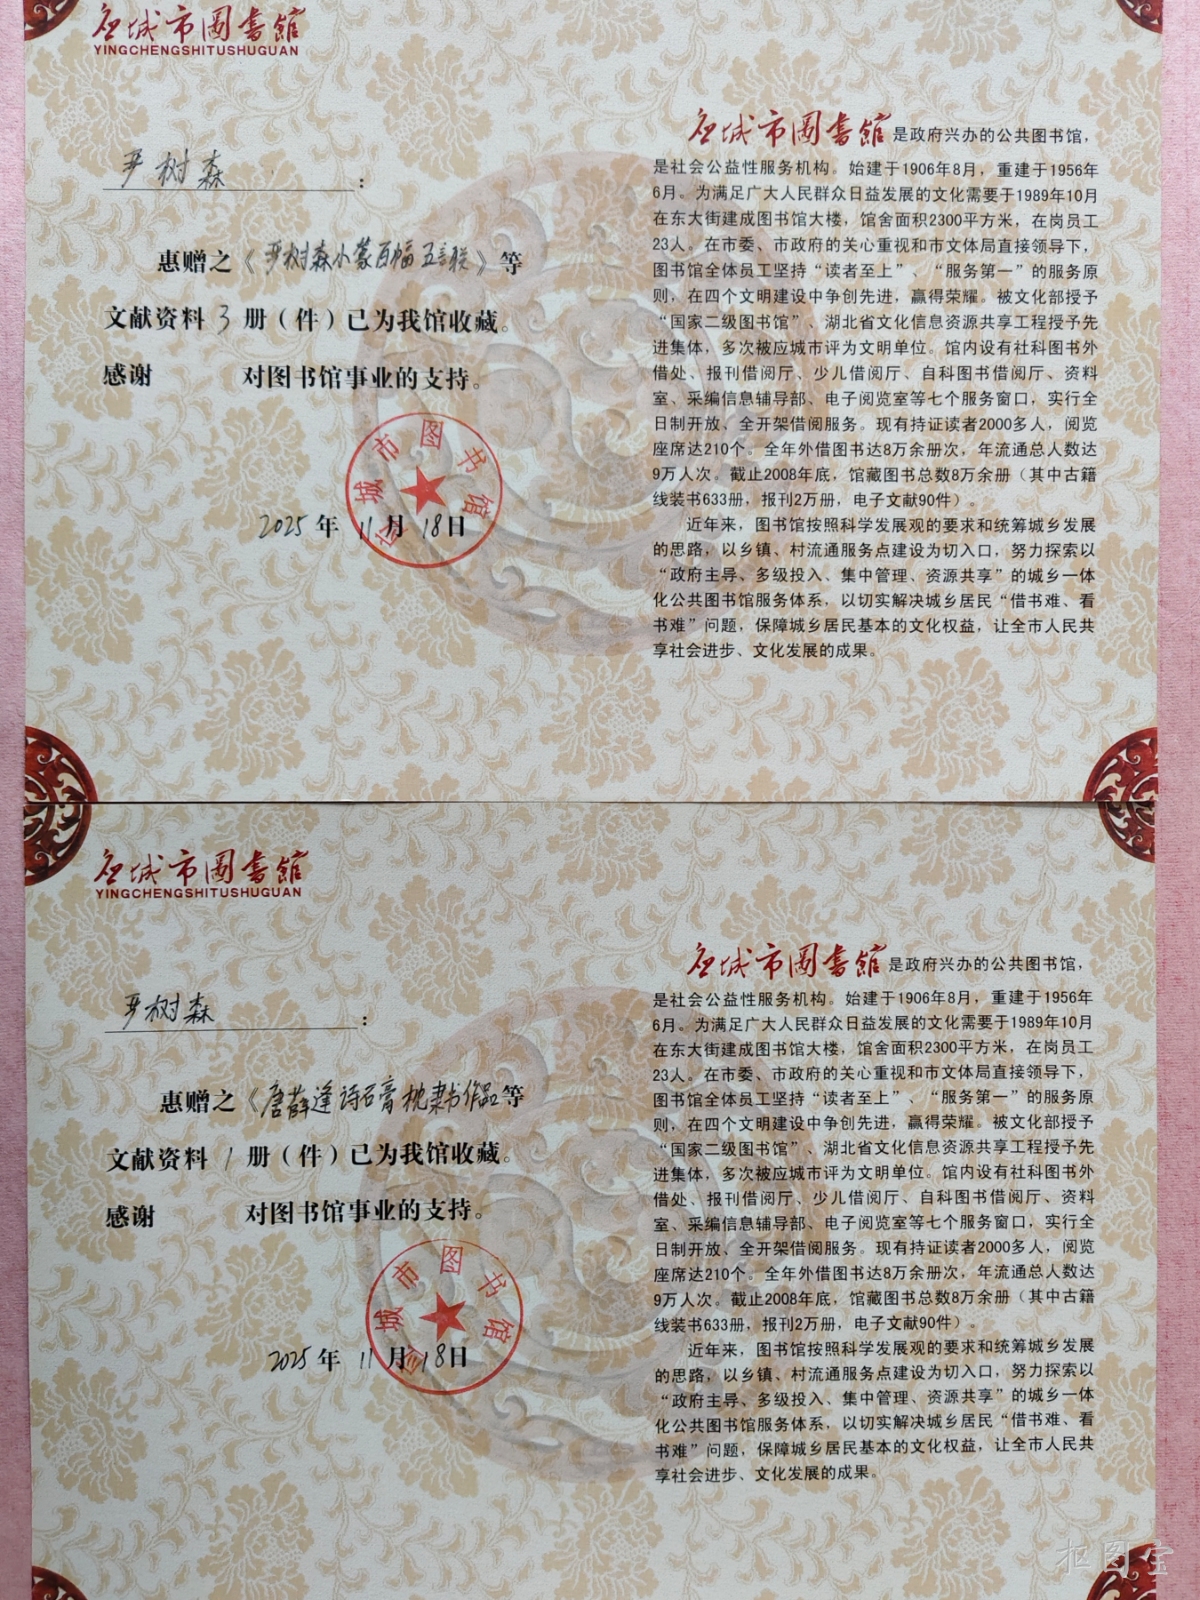 应城市图书馆
YINGCHENGSHITUSHUGUAN
严树森：
惠赠之《严树森小篆百幅五言联》等
文献资料3册（件）已为我馆收藏。
感谢 对图书馆事业的支持。
应城市图书馆
2025年11月18日
应城市图書館是政府兴办的公共图书馆，
是社会公益性服务机构。始建于1906年8月，重建于1956年
6月。为满足广大人民群众日益发展的文化需要于1989年10月
在东大街建成图书馆大楼，馆舍面积2300平方米，在岗员工
23人。在市委、市政府的关心重视和市文体局直接领导下，
图书馆全体员工坚持“读者至上”、“服务第一”的服务原
则，在四个文明建设中争创先进，赢得荣耀。被文化部授予
“国家二级图书馆”、湖北省文化信息资源共享工程授予先
进集体，多次被应城市评为文明单位。馆内设有社科图书外
借处、报刊借阅厅、少儿借阅厅、自科图书借阅厅、资料
室、采编信息辅导部、电子阅览室等七个服务窗口，实行全
日制开放、全开架借阅服务。现有持证读者2000多人，阅览
座席达210个。全年外借图书达8万余册次，年流通总人数达
9万人次。截止2008年底，馆藏图书总数8万余册（其中古籍
线装书633册，报刊2万册，电子文献90件）。
近年来，图书馆按照科学发展观的要求和统筹城乡发展
的思路，以乡镇、村流通服务点建设为切入口，努力探索以
“政府主导、多级投入、集中管理、资源共享”的城乡一体
化公共图书馆服务体系，以切实解决城乡居民“借书难、看
书难”问题，保障城乡居民基本的文化权益，让全市人民共
享社会进步、文化发展的成果。
应城市图書館
YINGCHENGSHITUSHUGUAN
严树森：
惠赠之《唐薛逢诗石膏枕隶书作品等
文献资料1册（件）已为我馆收藏。
感谢 对图书馆事业的支持。
应城市图书馆
2025年11月18日
应城市图書館是政府兴办的公共图书馆，
是社会公益性服务机构。始建于1906年8月，重建于1956年
6月。为满足广大人民群众日益发展的文化需要于1989年10月
在东大街建成图书馆大楼，馆舍面积2300平方米，在岗员工
23人。在市委、市政府的关心重视和市文体局直接领导下，
图书馆全体员工坚持“读者至上”、“服务第一”的服务原
则，在四个文明建设中争创先进，赢得荣耀。被文化部授予
“国家二级图书馆”、湖北省文化信息资源共享工程授予先
进集体，多次被应城市评为文明单位。馆内设有社科图书外
借处、报刊借阅厅、少儿借阅厅、自科图书借阅厅、资料
室、采编信息辅导部、电子阅览室等七个服务窗口，实行全
日制开放、全开架借阅服务。现有持证读者2000多人，阅览
座席达210个。全年外借图书达8万余册次，年流通总人数达
9万人次。截止2008年底，馆藏图书总数8万余册（其中古籍
线装书633册，报刊2万册，电子文献90件）。
近年来，图书馆按照科学发展观的要求和统筹城乡发展
的思路，以乡镇、村流通服务点建设为切入口，努力探索以
“政府主导、多级投入、集中管理、资源共享”的城乡一体
化公共图书馆服务体系，以切实解决城乡居民“借书难、看
书难”问题，保障城乡居民基本的文化权益，让全市人民共
享社会进步、文化发展的成果。
抠图宝